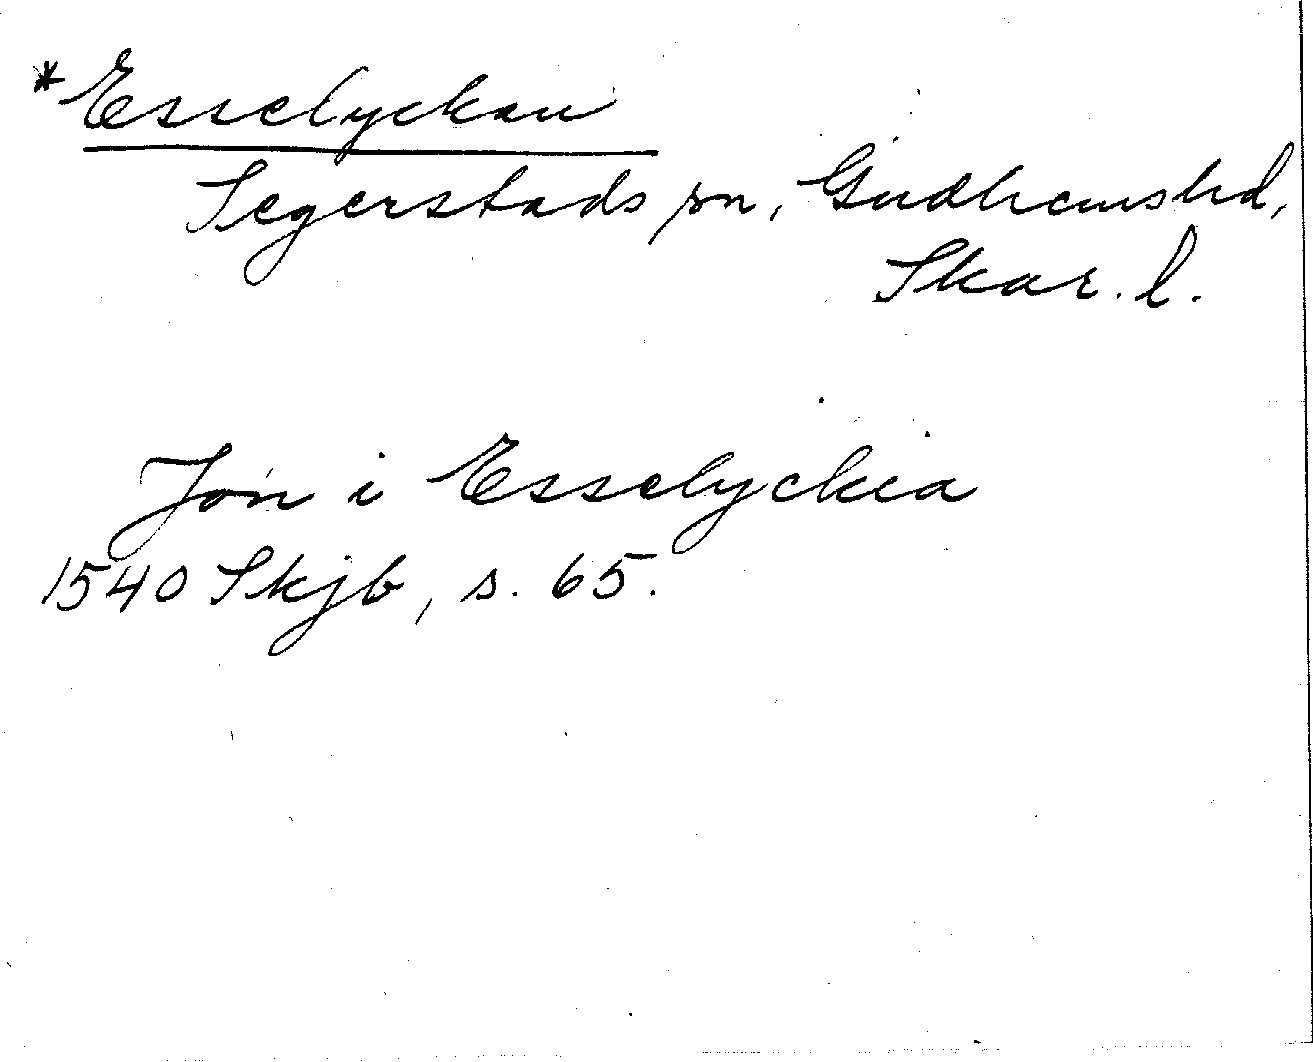 *Esselyckan
Segerstads sn, Gudhems hd,
Skar. l.
Jon i Esselyckia
1540 Skjb, s. 65.